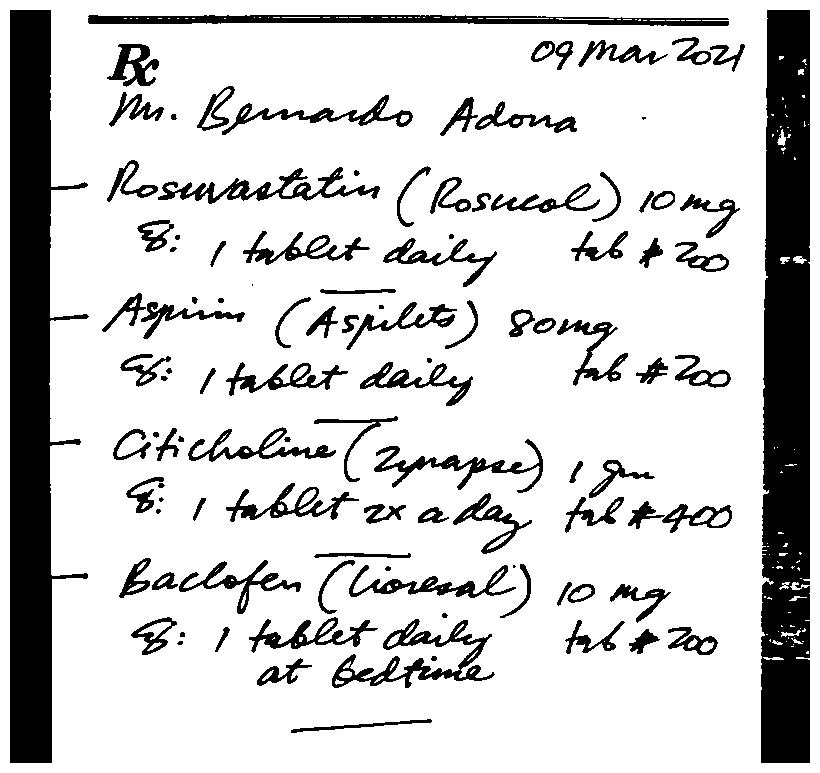 Rx
09 Mar 2021
Mr. Bernardo Adona
- Rosuvastatin (Rosucol) 10 mg
S: 1 tablet daily tab # 200
- Aspirin (Aspilets) 80mg
S: 1 tablet daily tab # 200
- Citicholine (Zynapse) 1 gm
S: 1 tablet 2x a day tab # 400
- Baclofen (Lioresal) 10 mg
S: 1 tablet daily tab # 200
at bedtime